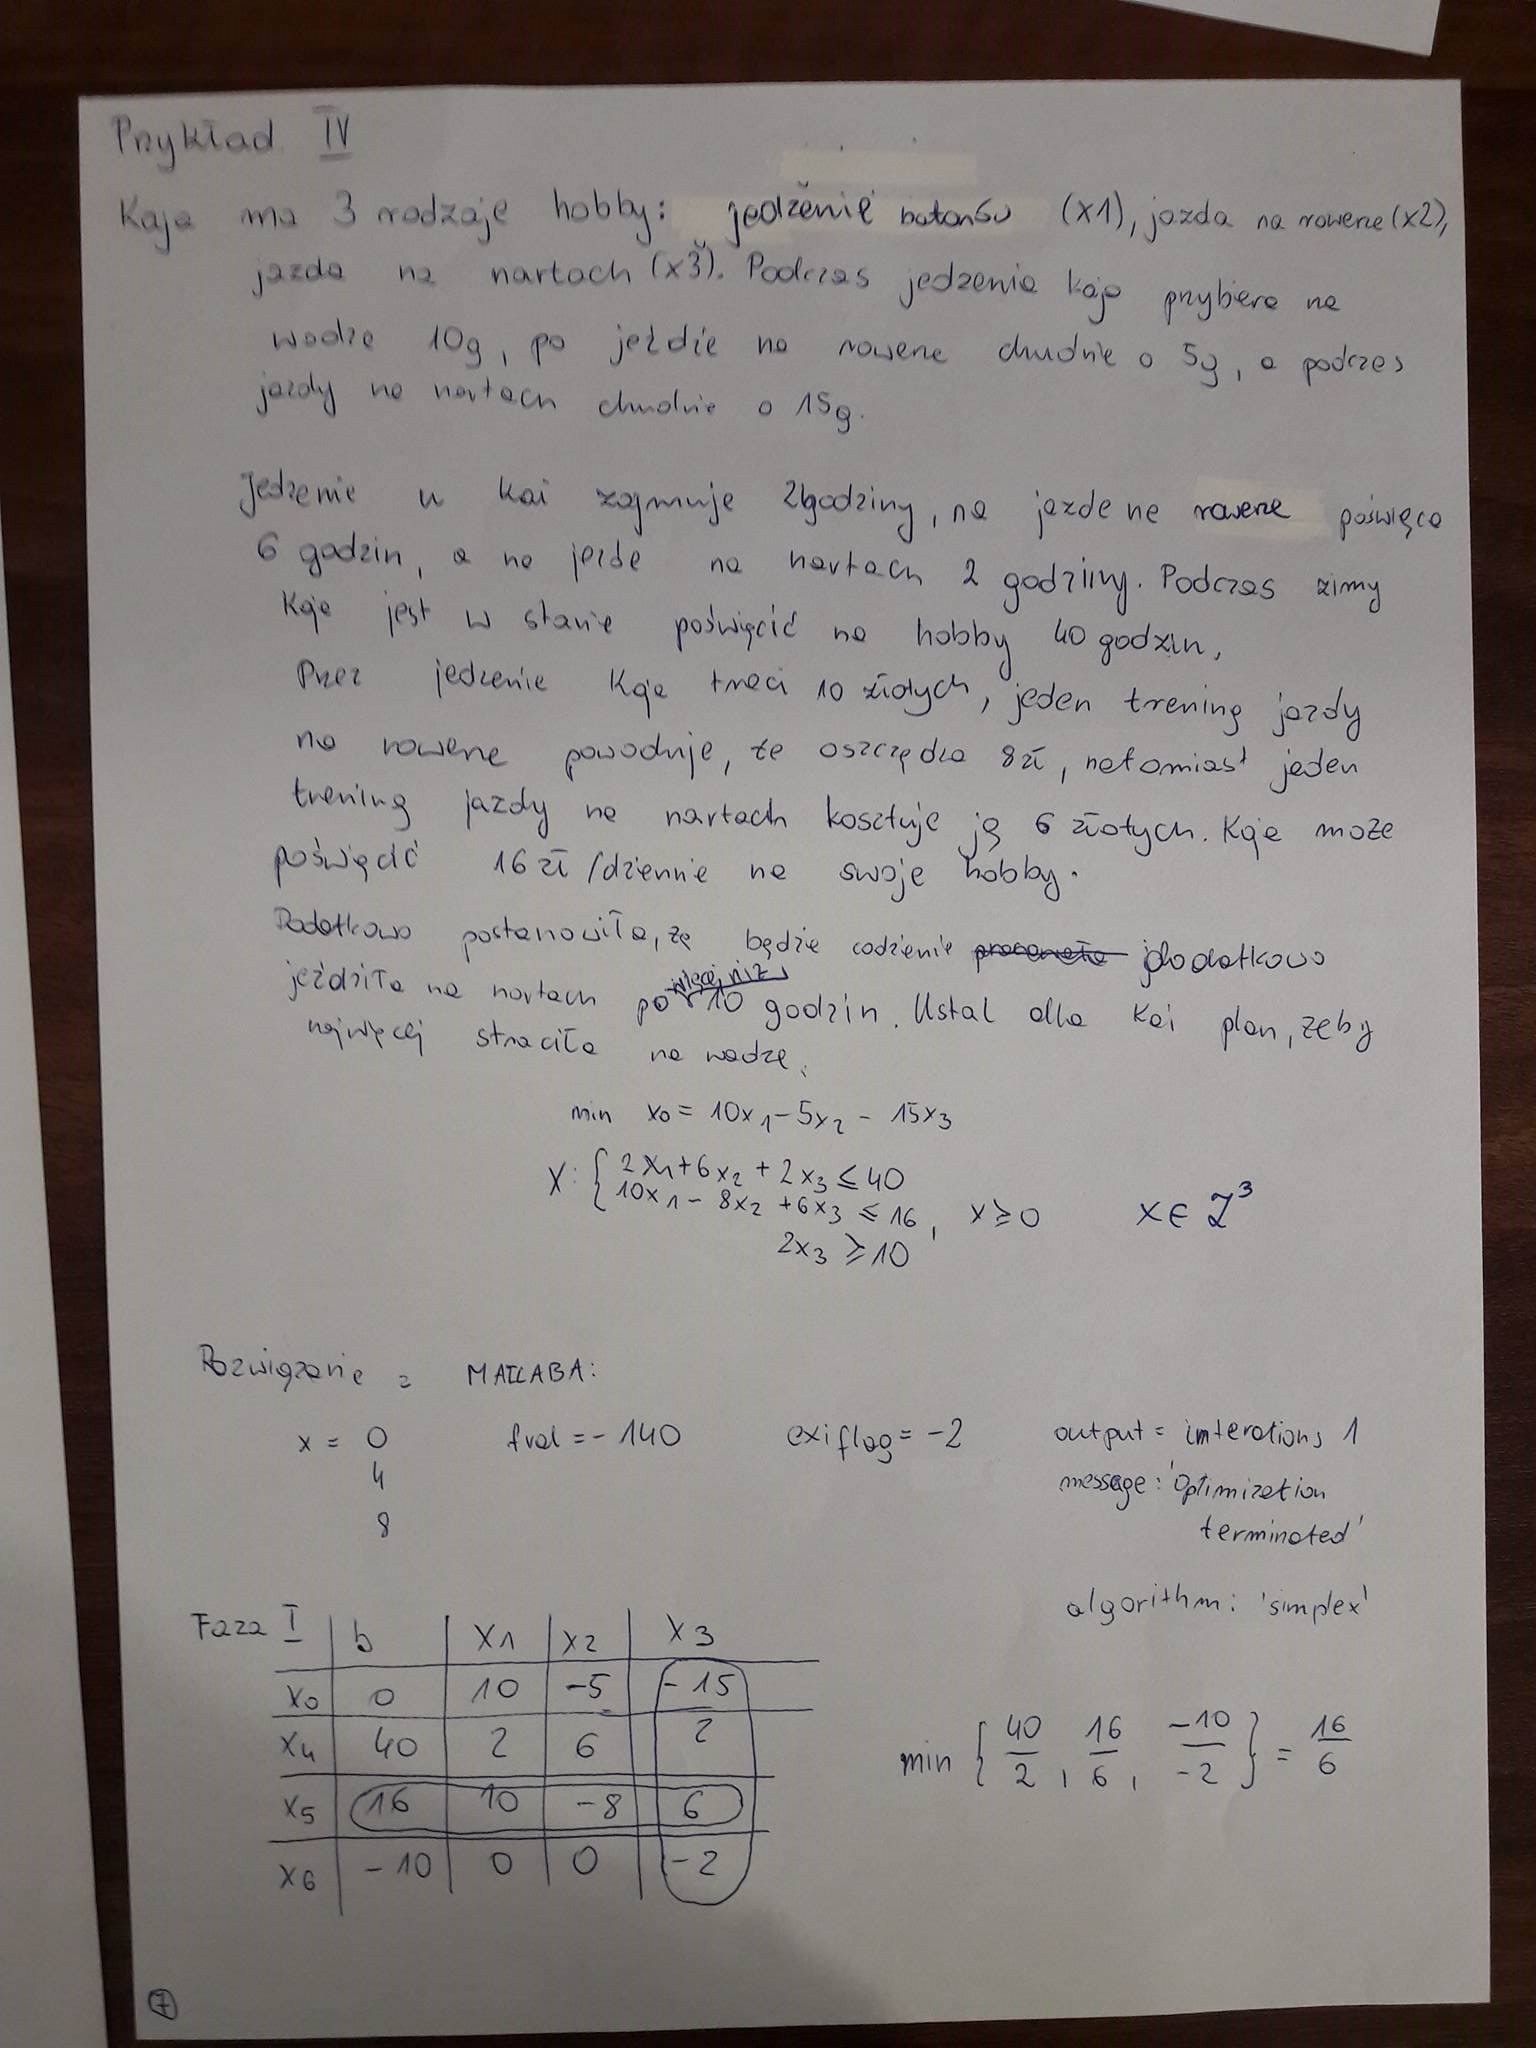 Przykład IV
Kaja ma 3 rodzaje hobby: jedzenie batonów (x1), jazda na rowerze (x2),
jazda na nartach (x3). Podczas jedzenia Kaja przybiera na
wadze 10g, po jeździe na rowerze chudnie o 5g, a podczas
jazdy na nartach chudnie o 15g.
Jedzenie u Kai zajmuje 2godziny, na jazde na rowerze poświęca
6 godzin, a na jazde na nartach 2 godziny. Podczas zimy
Kaja jest w stanie poświęcić na hobby 40 godzin,
Przez jedzenie Kaja traci 10 złotych, jeden trening jazdy
na rowerze powoduje, że oszczędza 8zł, natomiast jeden
trening jazdy na nartach kosztuje ją 6 złotych. Kaja może
poświęcić 16 zł /dziennie na swoje hobby.
Dodatkowo postanowiła, że będzie codzienie dodatkowo
jeździła na nartach po więcej niż 10 godzin. Ustal dla Kai plan, żeby
najwięcej straciła na wadze.
min x0 = 10x1 - 5x2 - 15x3
X: { 2x1 + 6x2 + 2x3 ≤ 40
10x1 - 8x2 + 6x3 ≤ 16, x ≥ 0 x ∈ Z³
2x3 ≥ 10
Rozwiązanie z MATLABA:
x = 0 fval = - 140 exiflag = -2 output = interations 1
4 message: 'Optimization
8 terminated'
algorithm: 'simplex'
Faza I b x1 x2 x3
x0 0 10 -5 -15
x4 40 2 6 2 min { 40/2, 16/6, -10/-2 } = 16/6
x5 16 10 -8 6
x6 -10 0 0 -2
7